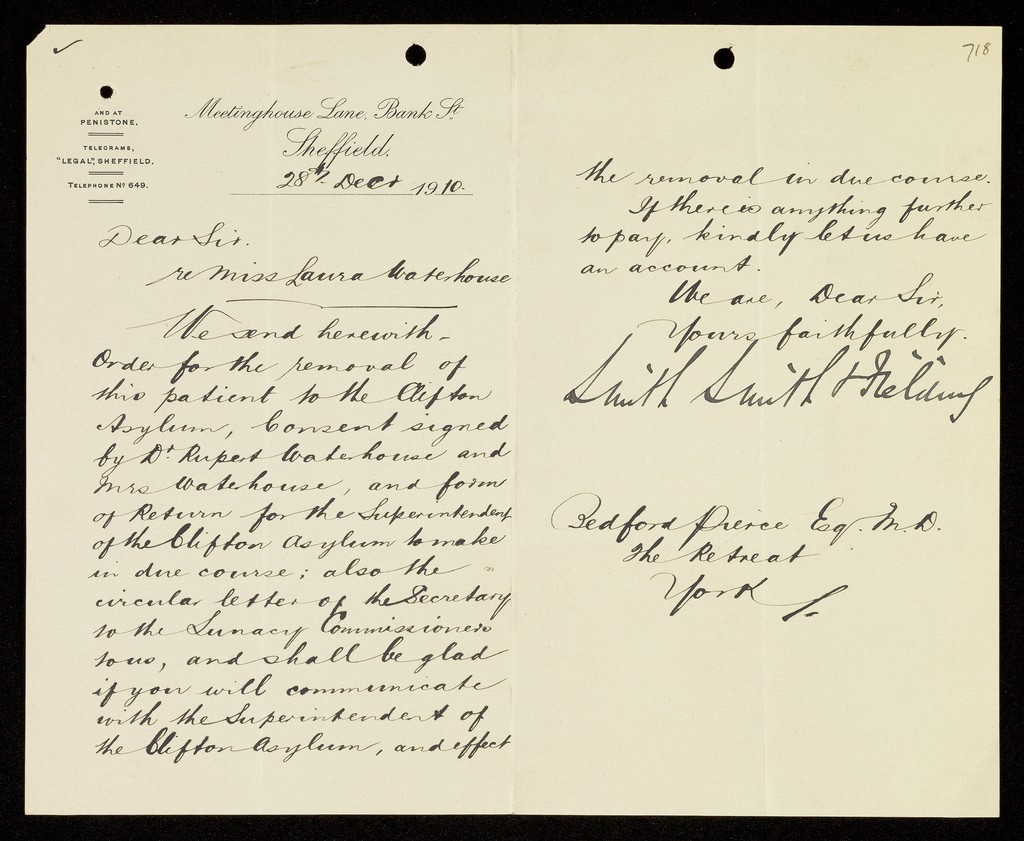 AND AT
PENISTONE.
TELEGRAMS,
"LEGAL", SHEFFIELD.
TELEPHONE No 649.
Meetinghouse Lane, Bank St.
Sheffield.
28th Decr 1910.
Dear Sir.
re Miss Laura Waterhouse
We send herewith
Order for the removal of
this patient to the Clifton
Asylum, Consent signed
by Dr. Rupert Waterhouse and
Mrs Waterhouse, and form
of Return for the Superintendent
of the Clifton Asylum to make
in due course; also the
circular letter of the Secretary
to the Lunacy Commissioners
to us, and shall be glad
if you will communicate
with the Superintendent of
the Clifton Asylum, and effect
718
the removal in due course.
If there is anything further
to pay, kindly let us have
an account.
We are, Dear Sir,
Yours faithfully.
Smith Smith & Fielding
Bedford Pierce Esq. M.D.
The Retreat
York